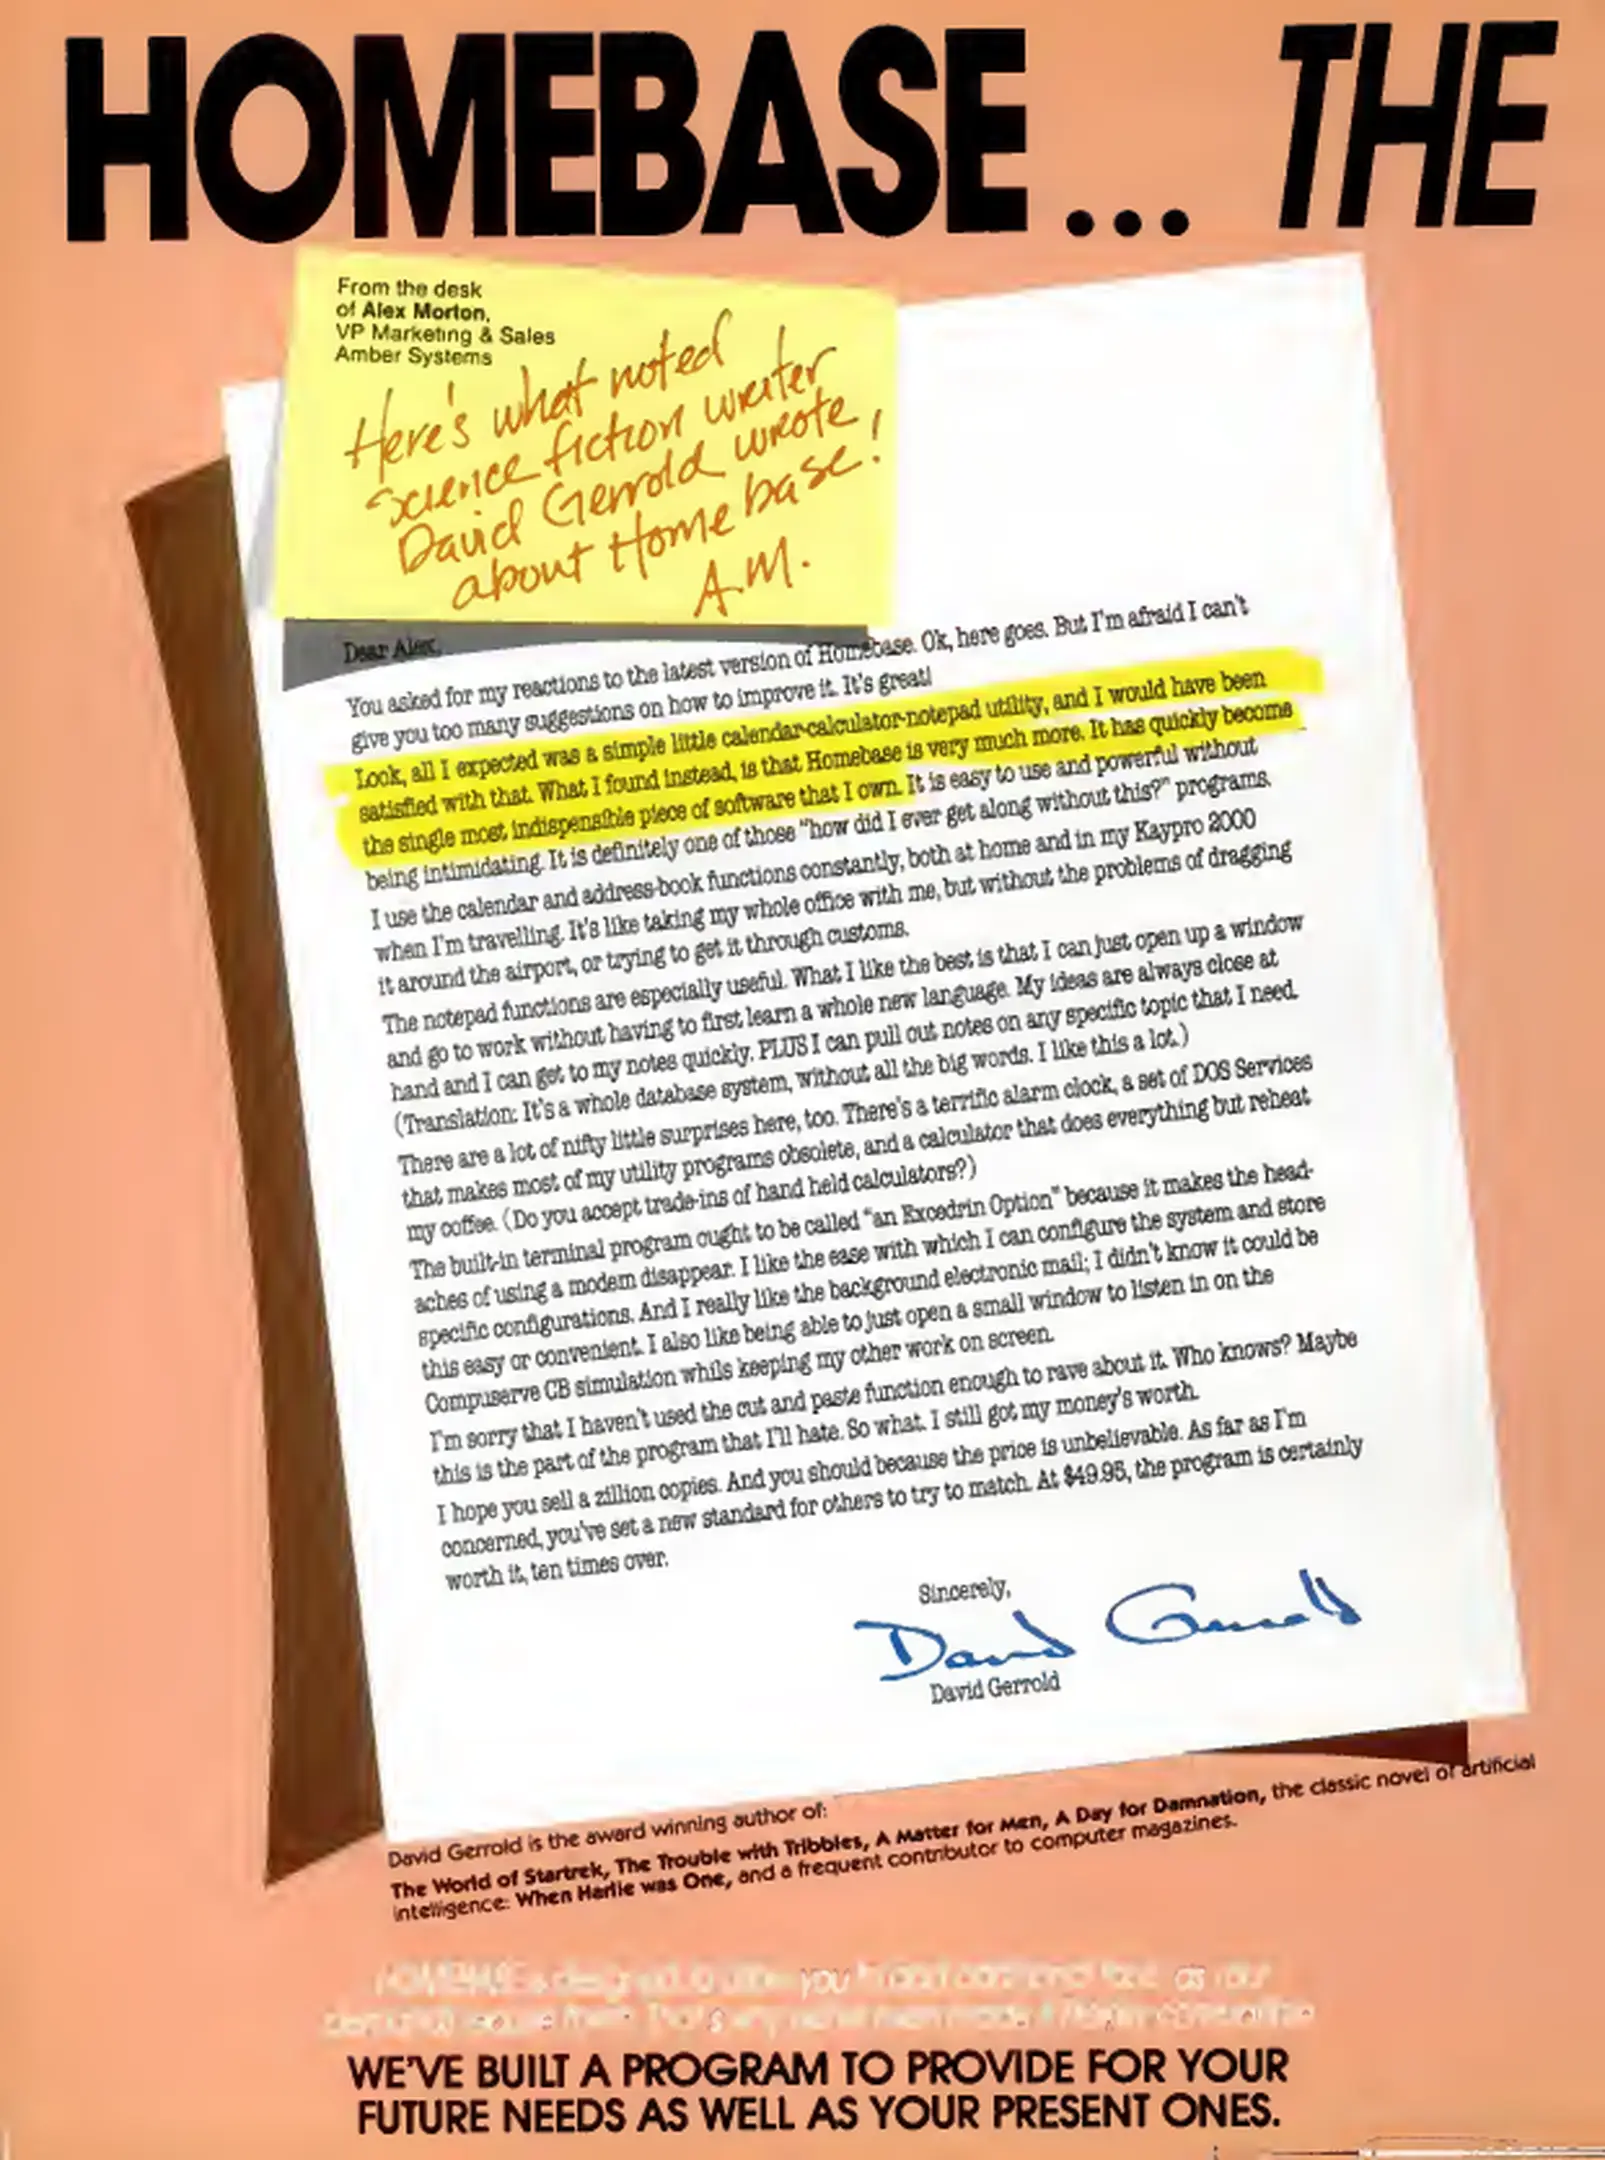 HOMEBASE... THE
From the desk
of Alex Morton,
VP Marketing & Sales
Amber Systems
Here's what noted
science fiction writer
David Gerrold wrote
about Homebase!
A.M.
Dear Alex,
You asked for my reactions to the latest version of Homebase. Ok, here goes. But I'm afraid I can't
give you too many suggestions on how to improve it. It's great!
Look, all I expected was a simple little calendar-calculator-notepad utility, and I would have been
satisfied with that. What I found instead, is that Homebase is very much more. It has quickly become
the single most indispensible piece of software that I own. It is easy to use and powerful without
being intimidating. It is definitely one of those "how did I ever get along without this?" programs.
I use the calendar and address-book functions constantly, both at home and in my Kaypro 2000
when I'm travelling. It's like taking my whole office with me, but without the problems of dragging
it around the airport, or trying to get it through customs.
The notepad functions are especially useful. What I like the best is that I can just open up a window
and go to work without having to first learn a whole new language. My ideas are always close at
hand and I can get to my notes quickly. PLUS I can pull out notes on any specific topic that I need.
(Translation: It's a whole database system, without all the big words. I like this a lot.)
There are a lot of nifty little surprises here, too. There's a terrific alarm clock, a set of DOS Services
that makes most of my utility programs obsolete, and a calculator that does everything but reheat
my coffee. (Do you accept trade-ins of hand held calculators?)
The built-in terminal program ought to be called "an Excedrin Option" because it makes the head-
aches of using a modem disappear. I like the ease with which I can configure the system and store
specific configurations. And I really like the background electronic mail; I didn't know it could be
this easy or convenient. I also like being able to just open a small window to listen in on the
Compuserve CB simulation while keeping my other work on screen.
I'm sorry that I haven't used the cut and paste function enough to rave about it. Who knows? Maybe
this is the part of the program that I'll hate. So what. I still got my money's worth.
I hope you sell a zillion copies. And you should because the price is unbelievable. As far as I'm
concerned, you've set a new standard for others to try to match. At $49.95, the program is certainly
worth it, ten times over.
Sincerely,
David Gerrold
David Gerrold
David Gerrold is the award winning author of:
The World of Startrek, The Trouble with Tribbles, A Matter for Men, A Day for Damnation, the classic novel of artificial
intelligence: When Harlie was One, and a frequent contributor to computer magazines.
HOMEBASE is designed to allow you to add as your
WE'VE BUILT A PROGRAM TO PROVIDE FOR YOUR
FUTURE NEEDS AS WELL AS YOUR PRESENT ONES.